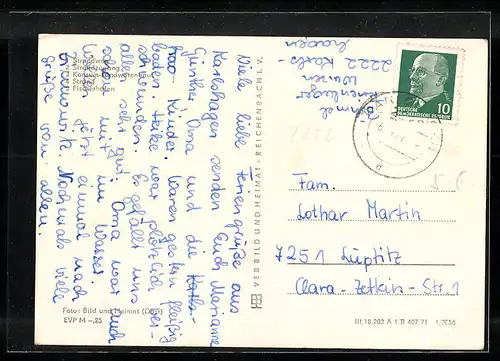 Strandweg
Strandzugang
Konsum-Landwarenhaus
Strand
Fischerhafen
Viele liebe Feriengrüße aus
Karlshagen senden Euch Marianne
Günther, Oma und die
Kinder. Waren gestern fleißig
baden. Heike war plötzlich ver-
schwunden. Es gefällt uns
allen sehr gut. Oma war auch
schon mit im Wasser.
Wollen jetzt einmal nach
Trassenheide. Nochmals viele
Grüße von allen.
Foto: Bild und Heimat
EVP M -,25
VEB BILD UND HEIMAT · REICHENBACH I. V.
2222 Karls-
hagen
10
DEUTSCHE
DEMOKRATISCHE REPUBLIK
Fam.
Lothar Martin
7251 Lüptitz
Clara-Zetkin-Str. 1
III/18/203 A 1 B 407/71 1/7056